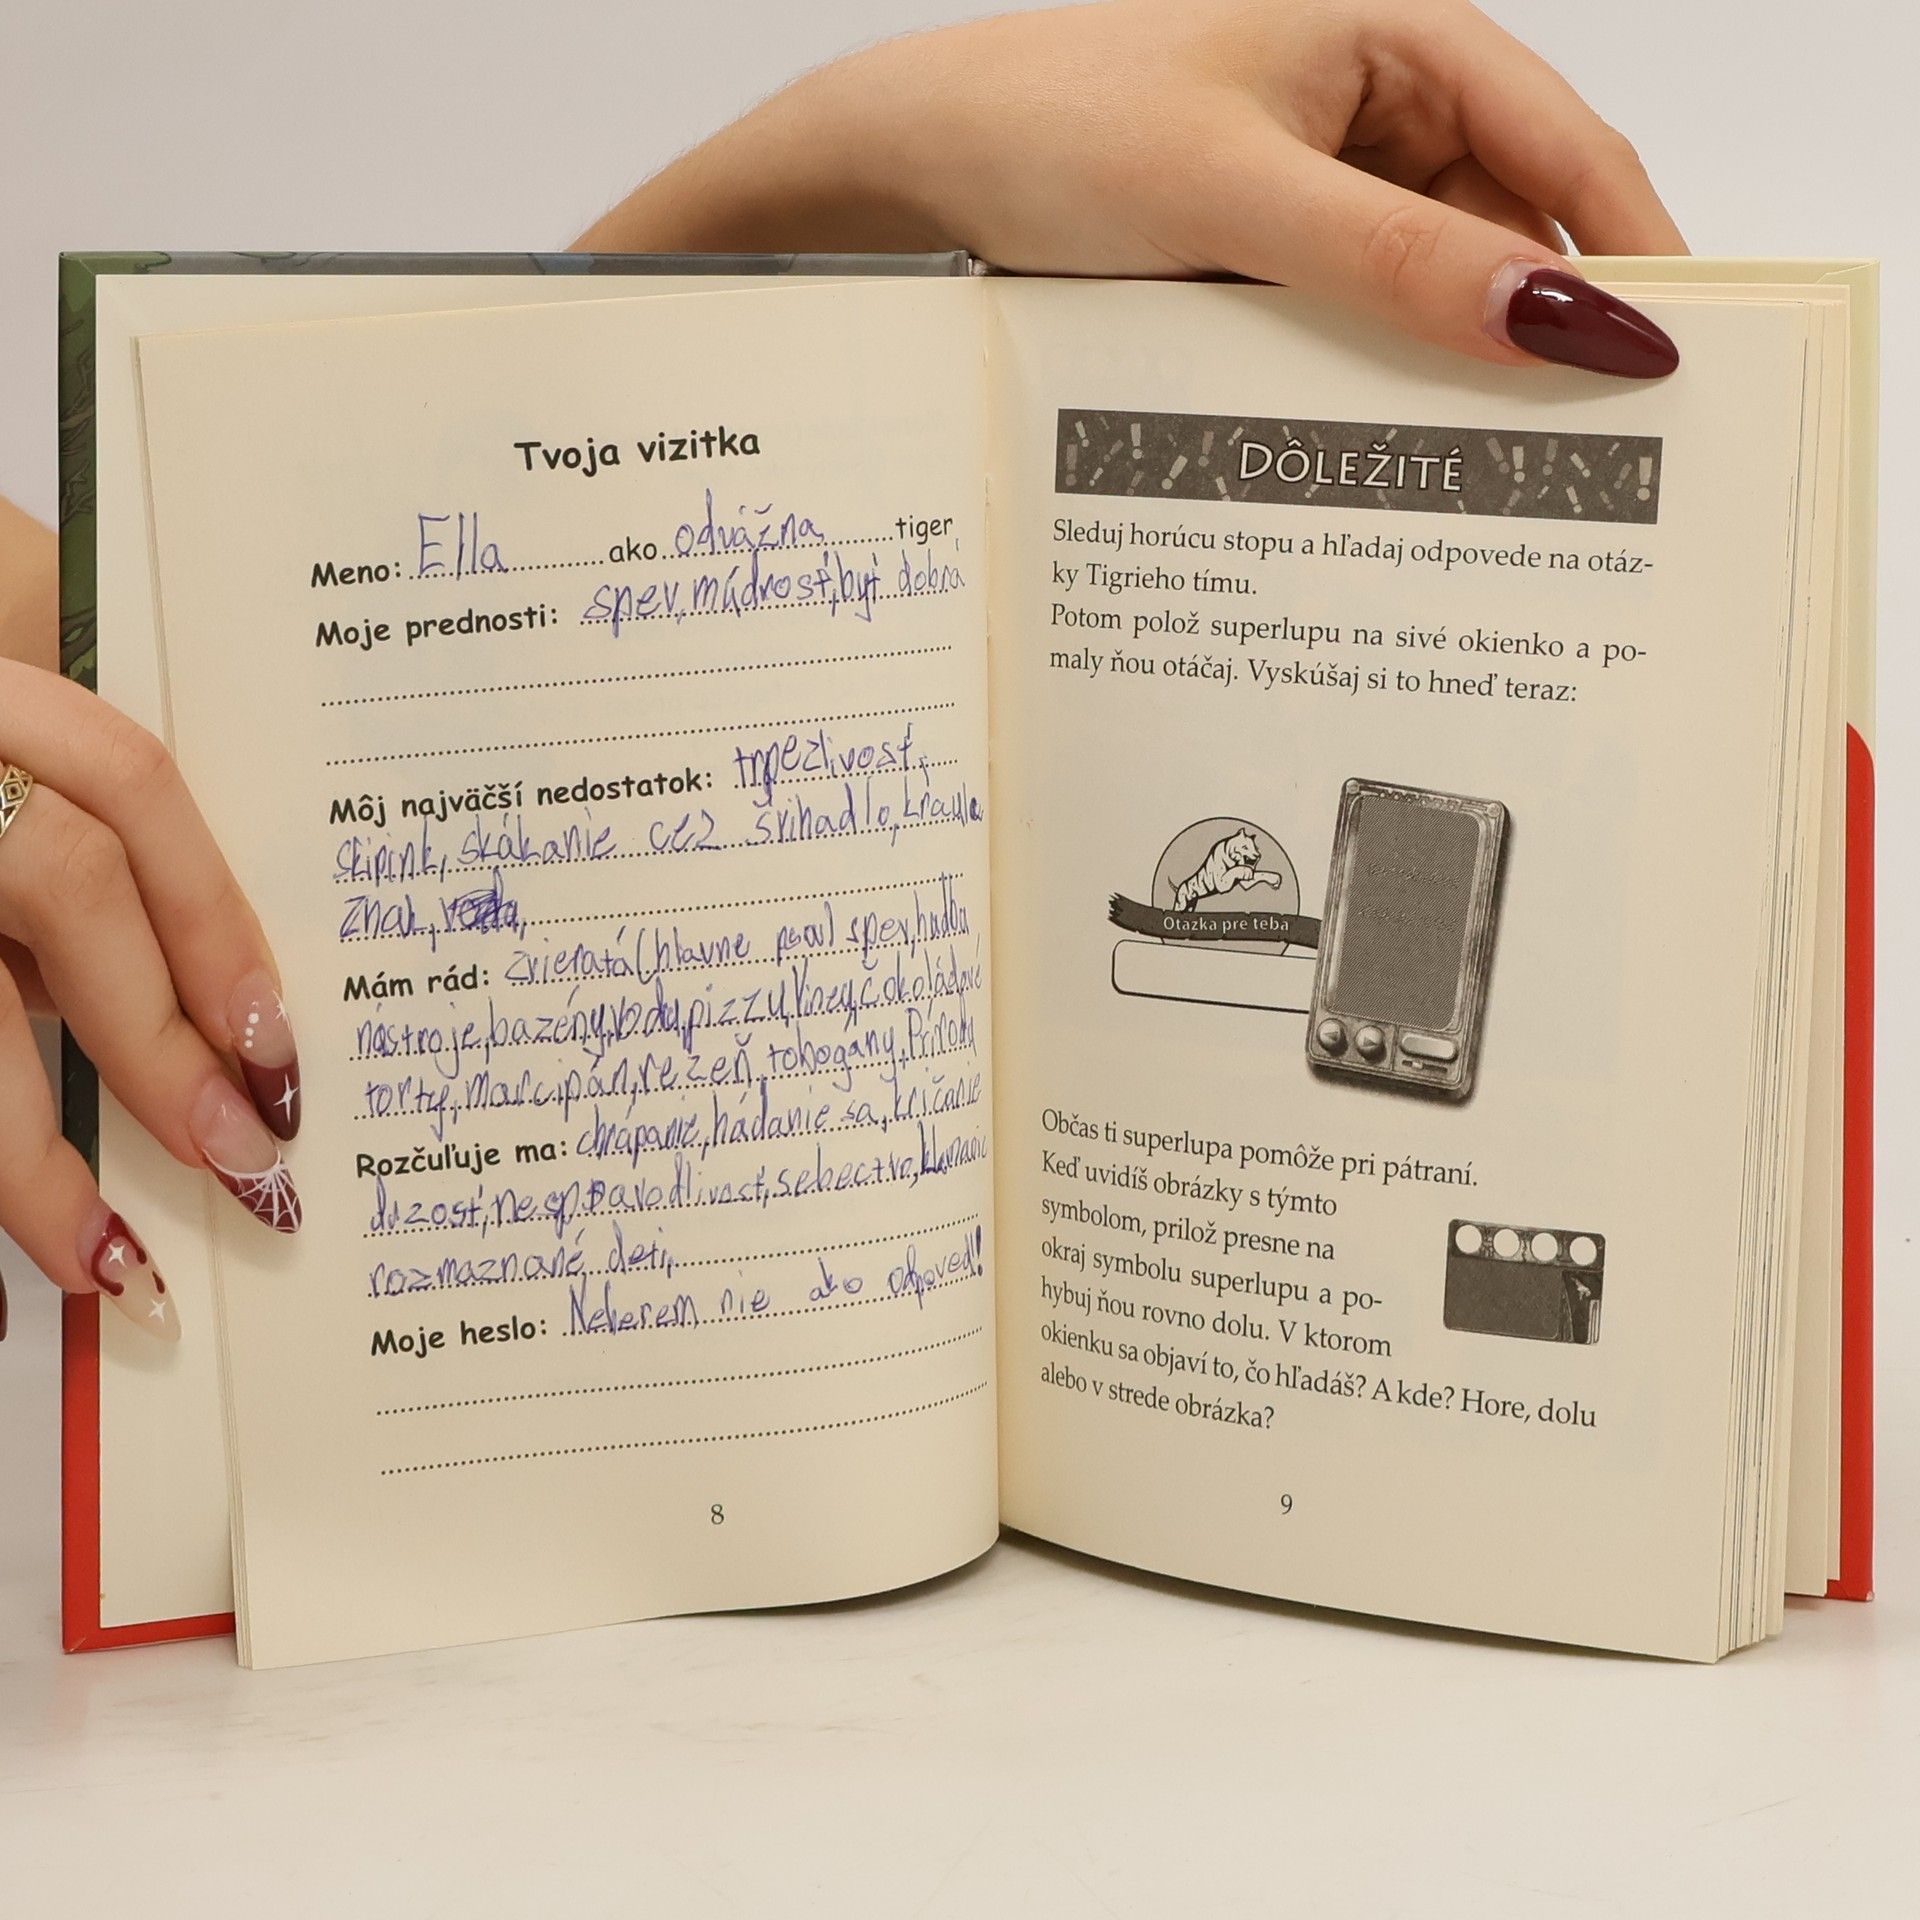 Tvoja vizitka
Meno: Ella ako odvážna tiger
Moje prednosti: spev, múdrosť, byť dobrá
Môj najväčší nedostatok: trpezlivosť,
skákanie cez švihadlo,
Znak,
Mám rád: zvieratá (hlavne psov) spev, hudba
nástroje, bazény, vodu, pizzu, čokoládové
torty, marcipán, rezeň, tobogány, Prírodu
Rozčuľuje ma: chrápanie, hádanie sa, kričanie
nespravodlivosť, sebectvo, klamanie
rozmaznané deti,
Moje heslo: Neberem nie ako odpoveď!
8
DÔLEŽITÉ
Sleduj horúcu stopu a hľadaj odpovede na otáz-
ky Tigrieho tímu.
Potom polož superlupu na sivé okienko a po-
maly ňou otáčaj. Vyskúšaj si to hneď teraz:
Otázka pre teba
Občas ti superlupa pomôže pri pátraní.
Keď uvidíš obrázky s týmto
symbolom, prilož presne na
okraj symbolu superlupu a po-
hybuj ňou rovno dolu. V ktorom
okienku sa objaví to, čo hľadáš? A kde? Hore, dolu
alebo v strede obrázka?
9